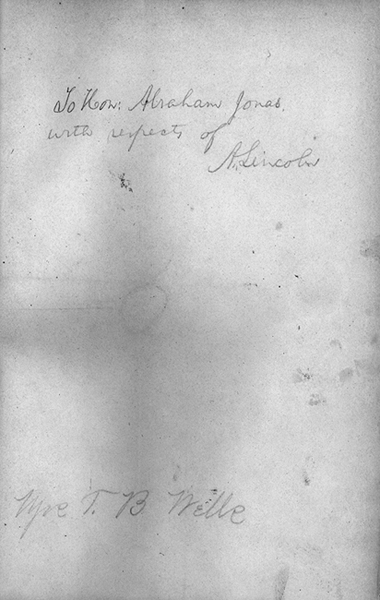 To Hon: Abraham Jonas,
with respects of
A. Lincoln
T. B Wells